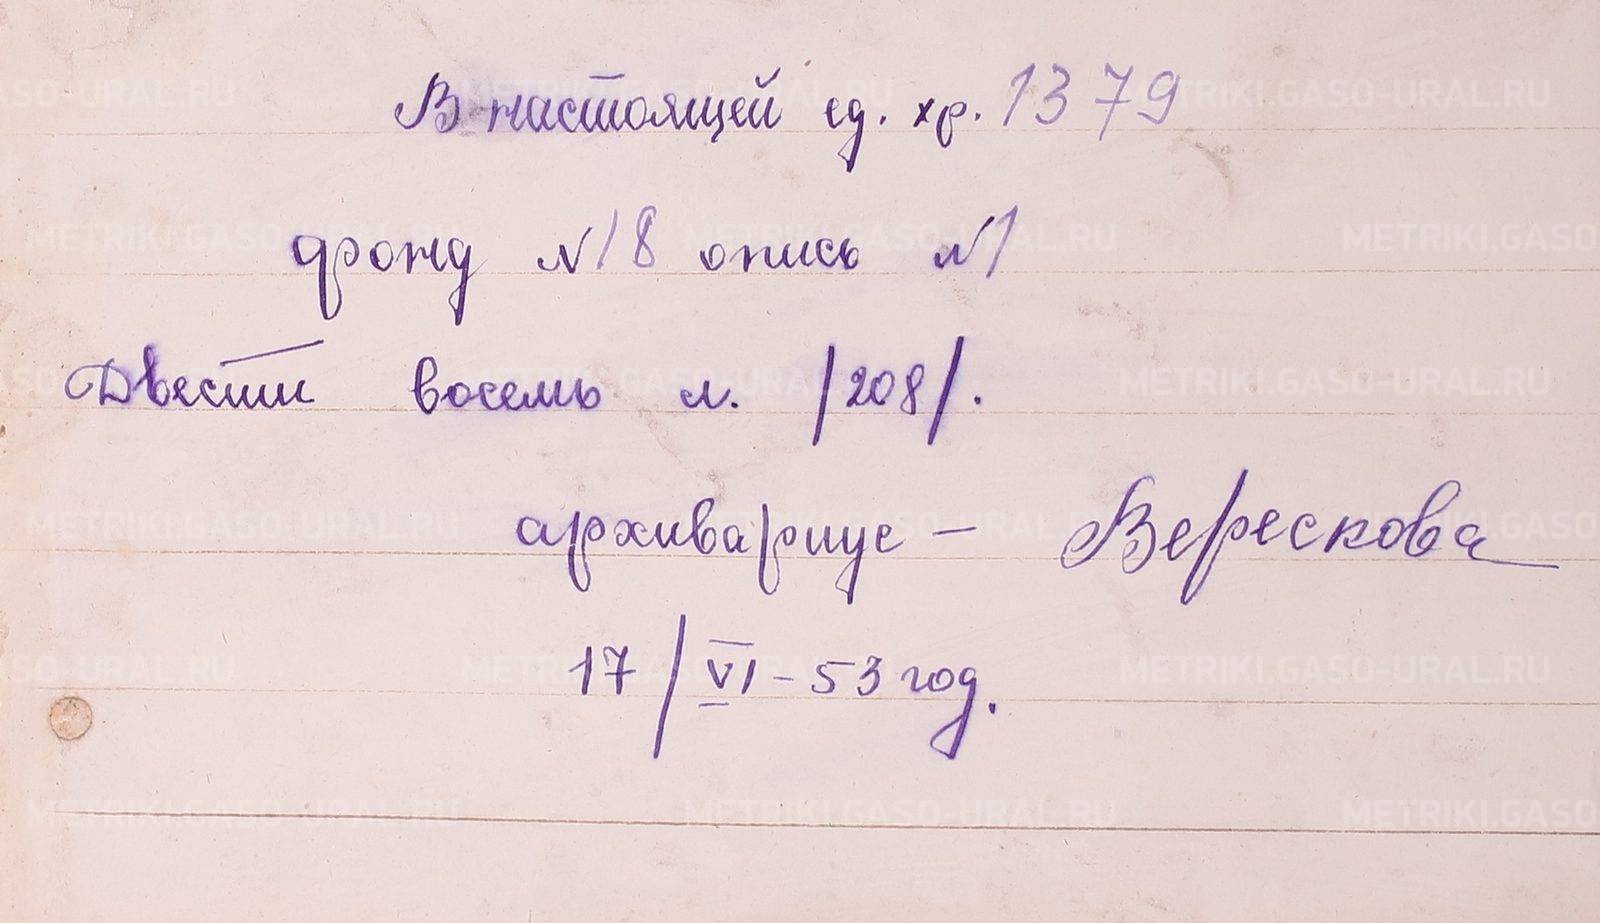 В настоящей ед. хр. 1379
фонд №18 опись №1
Двести восемь л. /208/.
архивариус – Верескова
17/VI – 53 год.